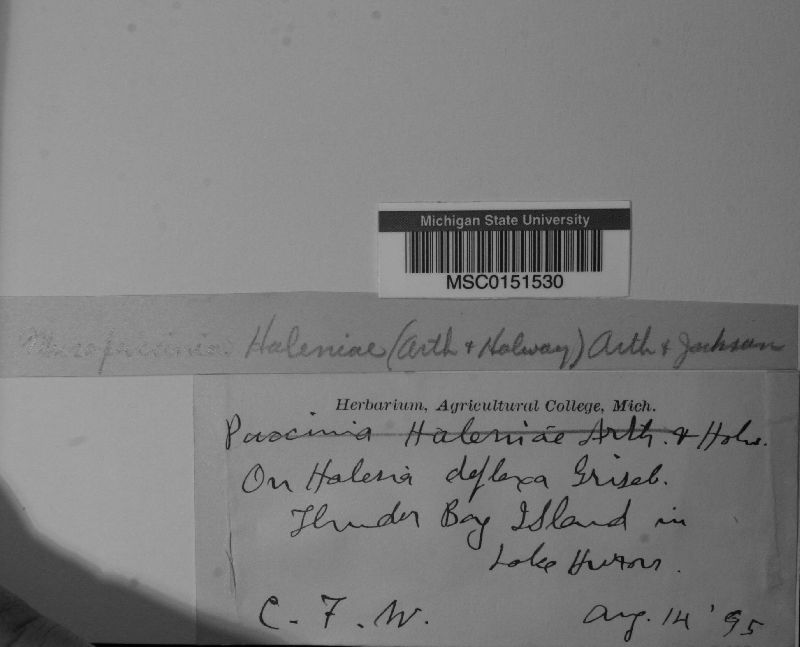 Michigan State University
MSC0151530
Micropuccinia Haleniae (Arth & Holway) Arth & Jackson
Herbarium, Agricultural College, Mich.
Puccinia Haleniae Arth. & Holw.
On Halenia deflexa Griseb.
Thunder Bay Island in
Lake Huron.
C. F. W. Aug. 14 '95